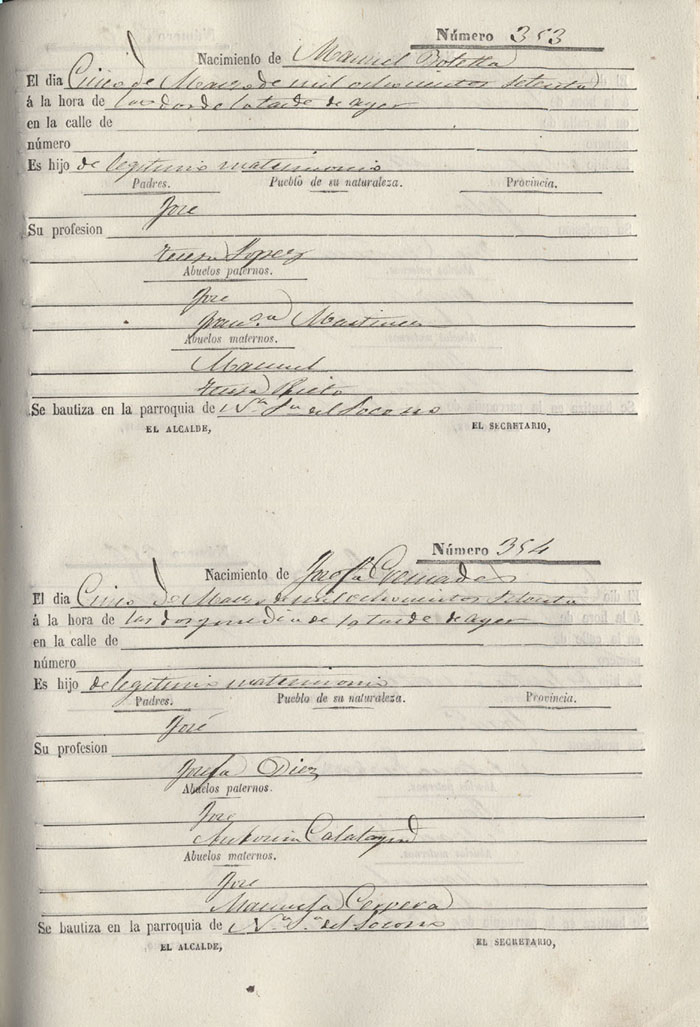 Número 353
Nacimiento de Manuel Botella
El dia Cinco de Marzo de mil ochocientos setenta
á la hora de las dos de la tarde de ayer
en la calle de
número
Es hijo de legitimo matrimonio
Padres. Pueblo de su naturaleza. Provincia.
Jose
Su profesion
Teresa Lopez
Abuelos paternos.
Jose
Fran.ca Martinez
Abuelos maternos.
Manuel
Teresa
Se bautiza en la parroquia de Na. Sa. del Socorro
EL ALCALDE, EL SECRETARIO,
Número 354
Nacimiento de Josefa Cremades
El dia Cinco de Marzo de mil ochocientos setenta
á la hora de las dos y media de la tarde de ayer
en la calle de
número
Es hijo de legitimo matrimonio
Padres. Pueblo de su naturaleza. Provincia.
José
Su profesion
Josefa Diez
Abuelos paternos.
Jose
Antonia Calatayud
Abuelos maternos.
Jose
Manuela Cerrera
Se bautiza en la parroquia de Na. Sa. del Socorro
EL ALCALDE, EL SECRETARIO,